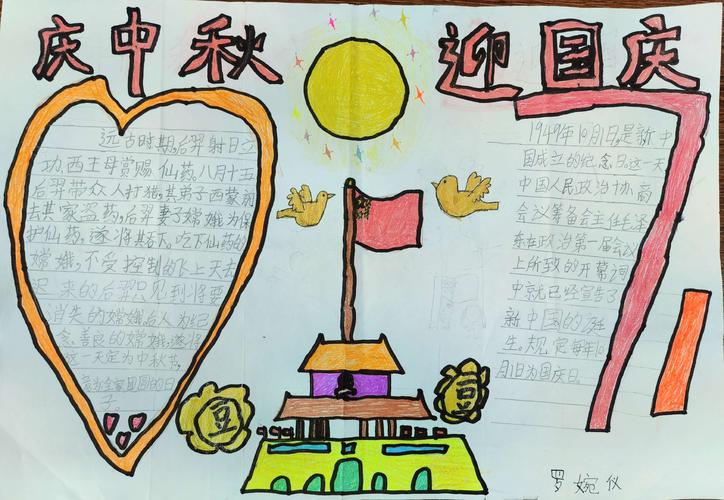 庆中秋 迎国庆
远古时期,后羿射日立
功,西王母赏赐仙药,八月十五
后羿带众人打猎,其弟子西蒙前
去其家盗药,后羿妻子嫦娥为保
护仙药,遂将其吞下,吃下仙药的
嫦娥,不受控制的飞上天去
迟来的后羿只见到将要
消失的嫦娥后人为纪
念善良的嫦娥,遂将
这一天定为中秋节,
意为全家团圆的日
子。
1949年10月1日,是新中
国成立的纪念日这一天
中国人民政治协商
会议筹备会主任毛泽
东在政治第一届会议
上所致的开幕词
中就已经宣告了
新中国的诞
生。规定每年10
月1日为国庆日。
豆
豆
罗婉仪